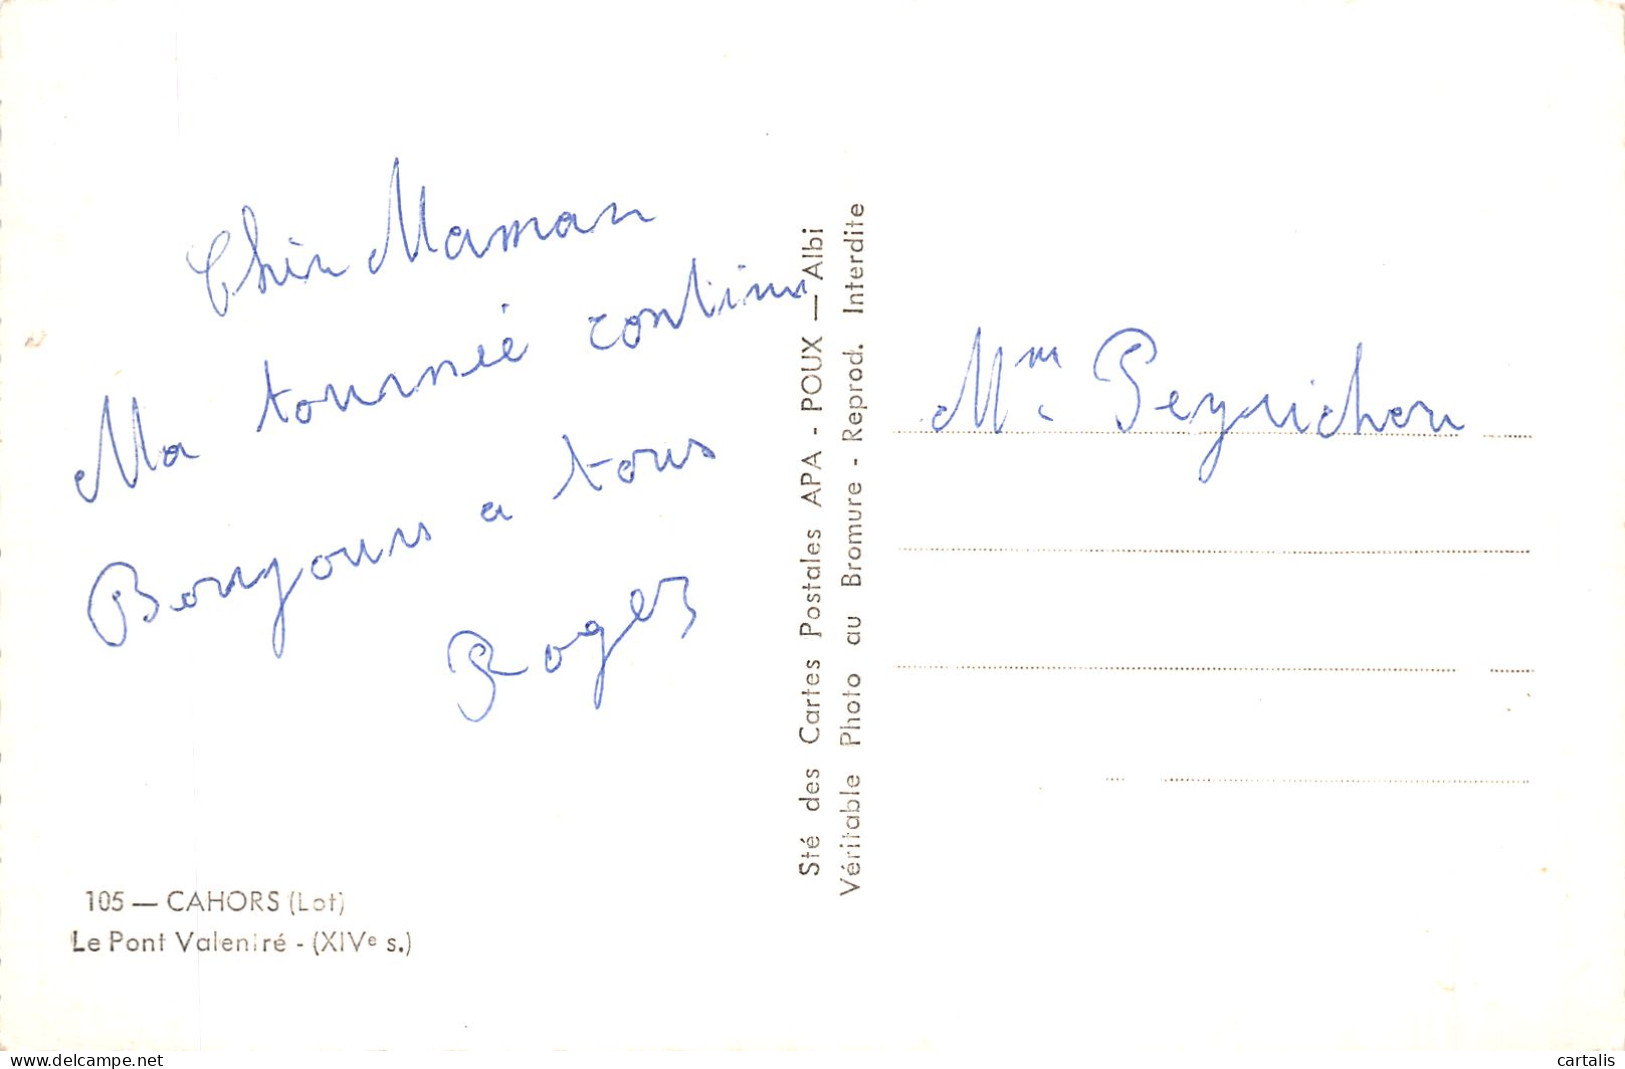 Chère Maman
Ma tournée continu
Bonjours a tous
Roger
105 — CAHORS (Lot)
Le Pont Valentré - (XIVe s.)
Sté des Cartes Postales APA - POUX — Albi
Véritable Photo au Bromure - Reprod. Interdite
Mme Peyrichou
www.delcampe.net
cartalis